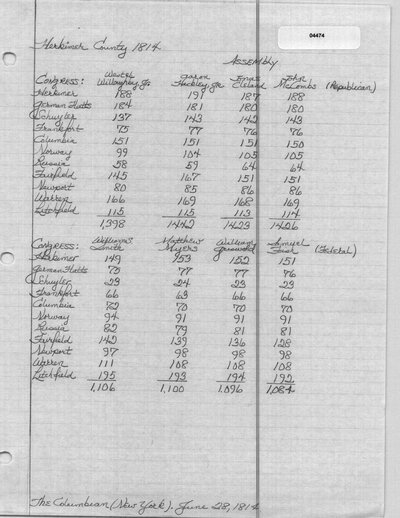 04474
Herkimer County 1814
Assembly
Congress: Westel Willoughby, Jr. Aaron Hackley, Jr. Jonas Cleland John McCombs (Republican)
Herkimer 188 191 187 188
German Flatts 184 181 180 180
Schuyler 137 143 142 143
Frankfort 75 77 76 76
Columbia 151 151 151 150
Norway 99 104 105 105
Russia 58 59 64 64
Fairfield 145 167 151 151
Newport 80 85 86 86
Warren 166 169 168 169
Litchfield 115 115 113 114
1,398 1442 1423 1426
Congress: William Smith Matthew Myers William Griswold Samuel (Federal)
Herkimer 149 153 152 151
German Flatts 70 77 77 76
Schuyler 23 24 23 23
Frankfort 66 63 66 66
Columbia 72 70 70 70
Norway 94 91 91 91
Russia 82 79 81 81
Fairfield 142 139 136 128
Newport 97 98 98 98
Warren 111 108 108 108
Litchfield 195 193 194 192
1,106 1,100 1,096 1,084
The Columbian (New York). June 28, 1814